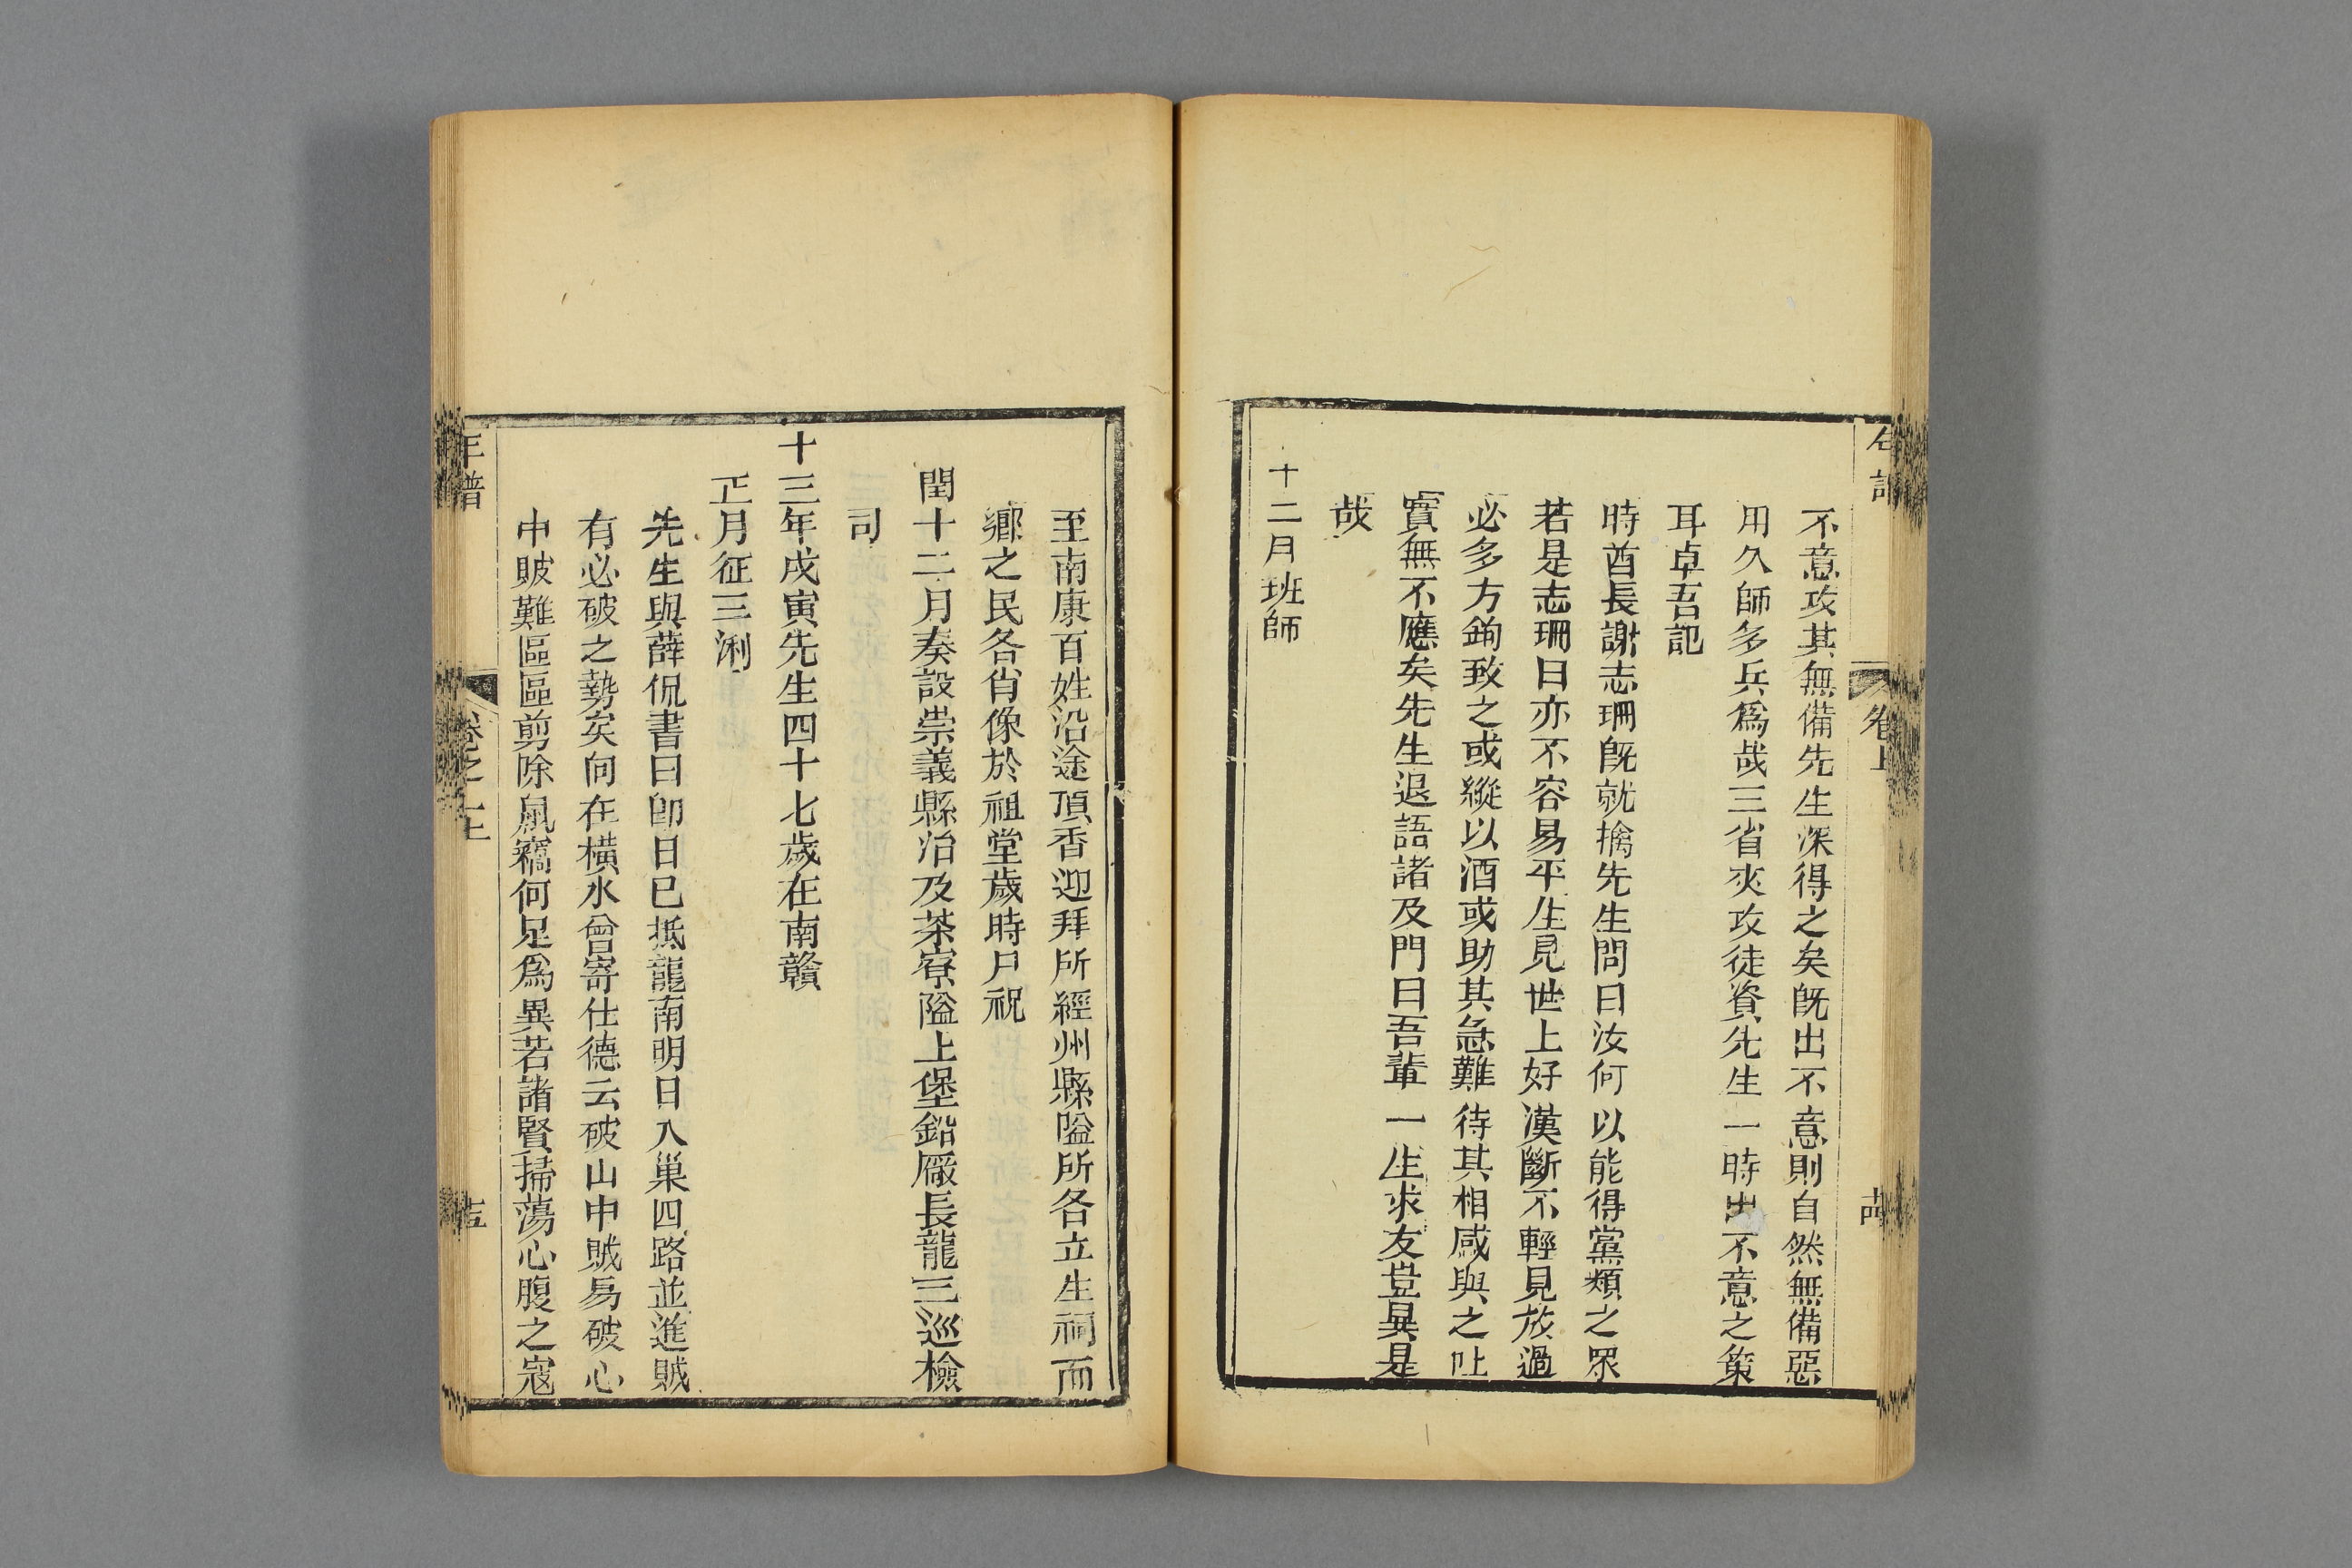 不意攻其無備先生深得之矣既出不意則自然無備惡
用久師多兵爲哉三省夾攻徒資先生一時出不意之策
耳卓吾記
時酋長謝志珊既就擒先生問曰汝何以能得黨類之眾
若是志珊曰亦不容易平生見世上好漢斷不輕見放過
必多方鉤致之或縱以酒或助其急難待其相感與之吐
實無不應矣先生退語諸及門曰吾輩一生求友豈異是
哉
十二月班師
至南康百姓沿途頂香迎拜所經州縣隘所各立生祠而
鄉之民各肖像於祖堂歲時尸祝
閏十二月奏設崇義縣治及茶寮隘上堡鉛厰長龍三巡檢
司
十三年戊寅先生四十七歲在南贛
正月征三浰
先生與薛侃書曰卽日已抵龍南明日入巢四路並進賊
有必破之勢矣向在橫水曾寄仕德云破山中賊易破心
中賊難區區剪除鼠竊何足爲異若諸賢掃蕩心腹之寇